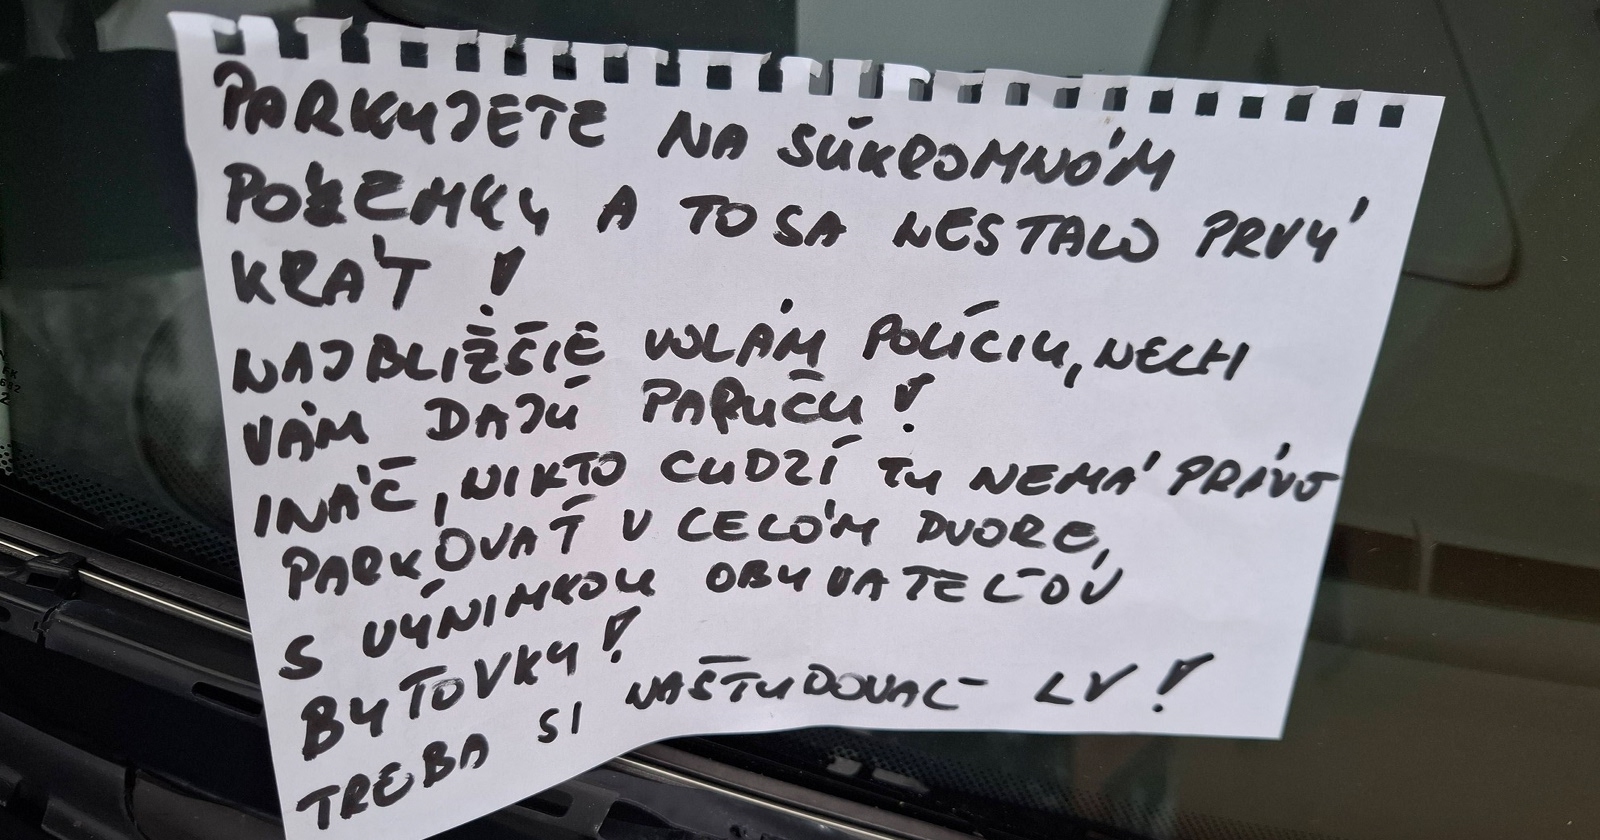 PARKUJETE NA SÚKROMNÓM
POZEMKU A TO SA NESTALO PRVÝ
KRÁT !
NAJBLIŽŠIE VOLÁM POLÍCIU, NECH
VÁM DAJÚ PAPUČU !
INÁČ, NIKTO CUDZÍ TU NEMÁ PRÁVO
PARKOVAŤ V CELÓM DVORE,
S VÝNIMKOU OBYVATEĽOV
BYTOVKY !
TREBA SI NAŠTUDOVAŤ LV !